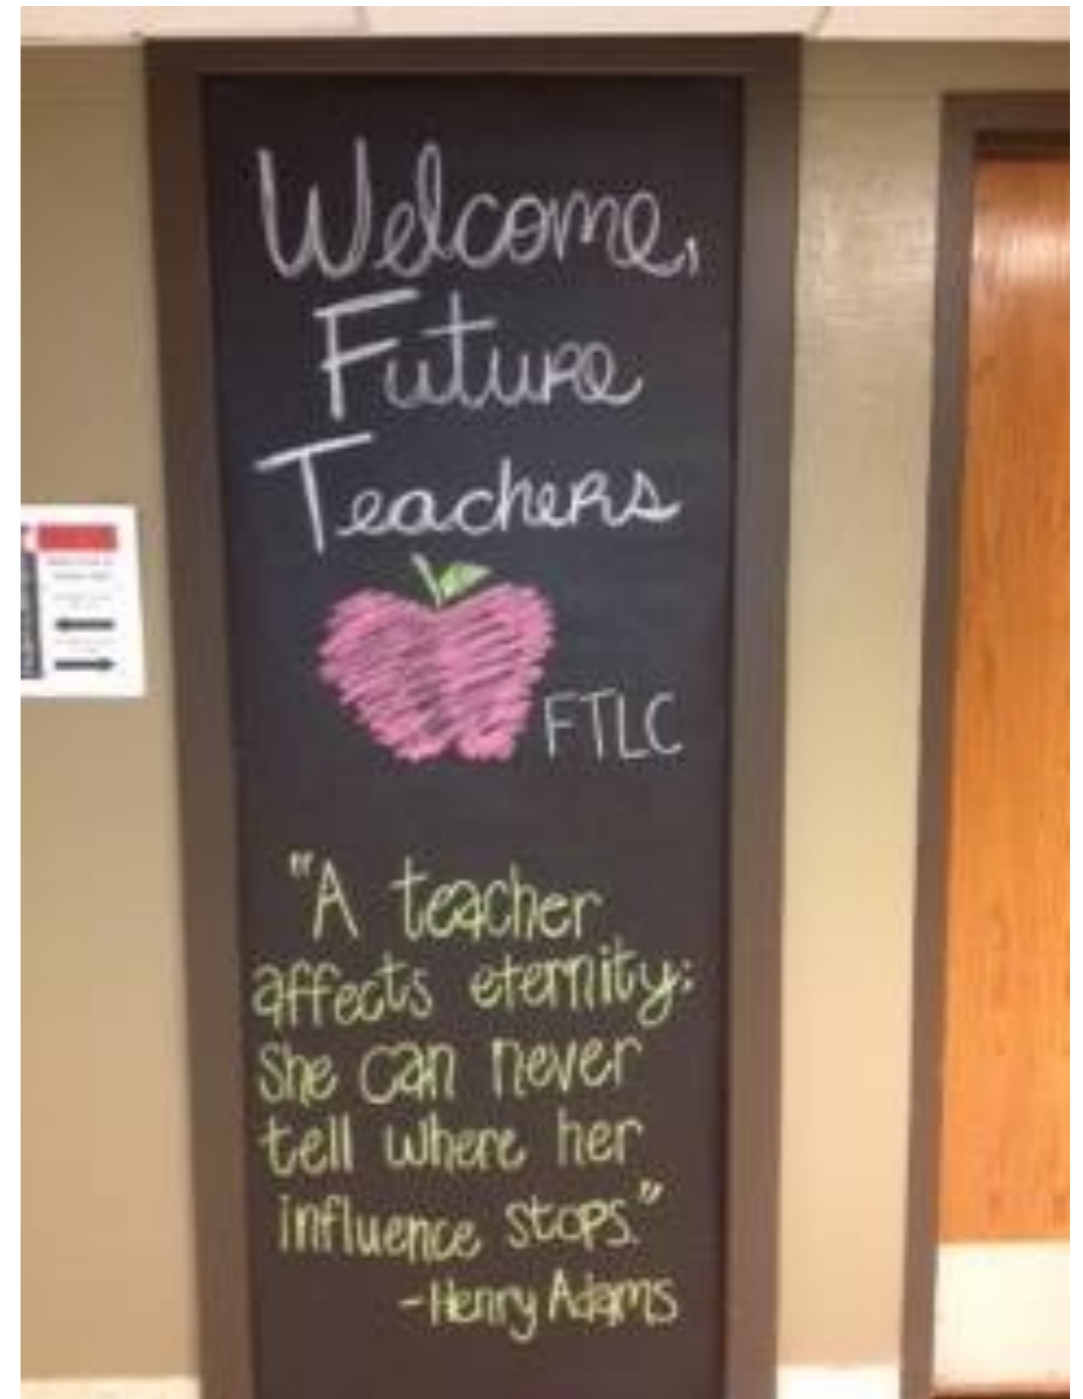 Welcome,
Future
Teachers
FTLC
"A teacher
affects eternity;
she can never
tell where her
influence stops."
-Henry Adams